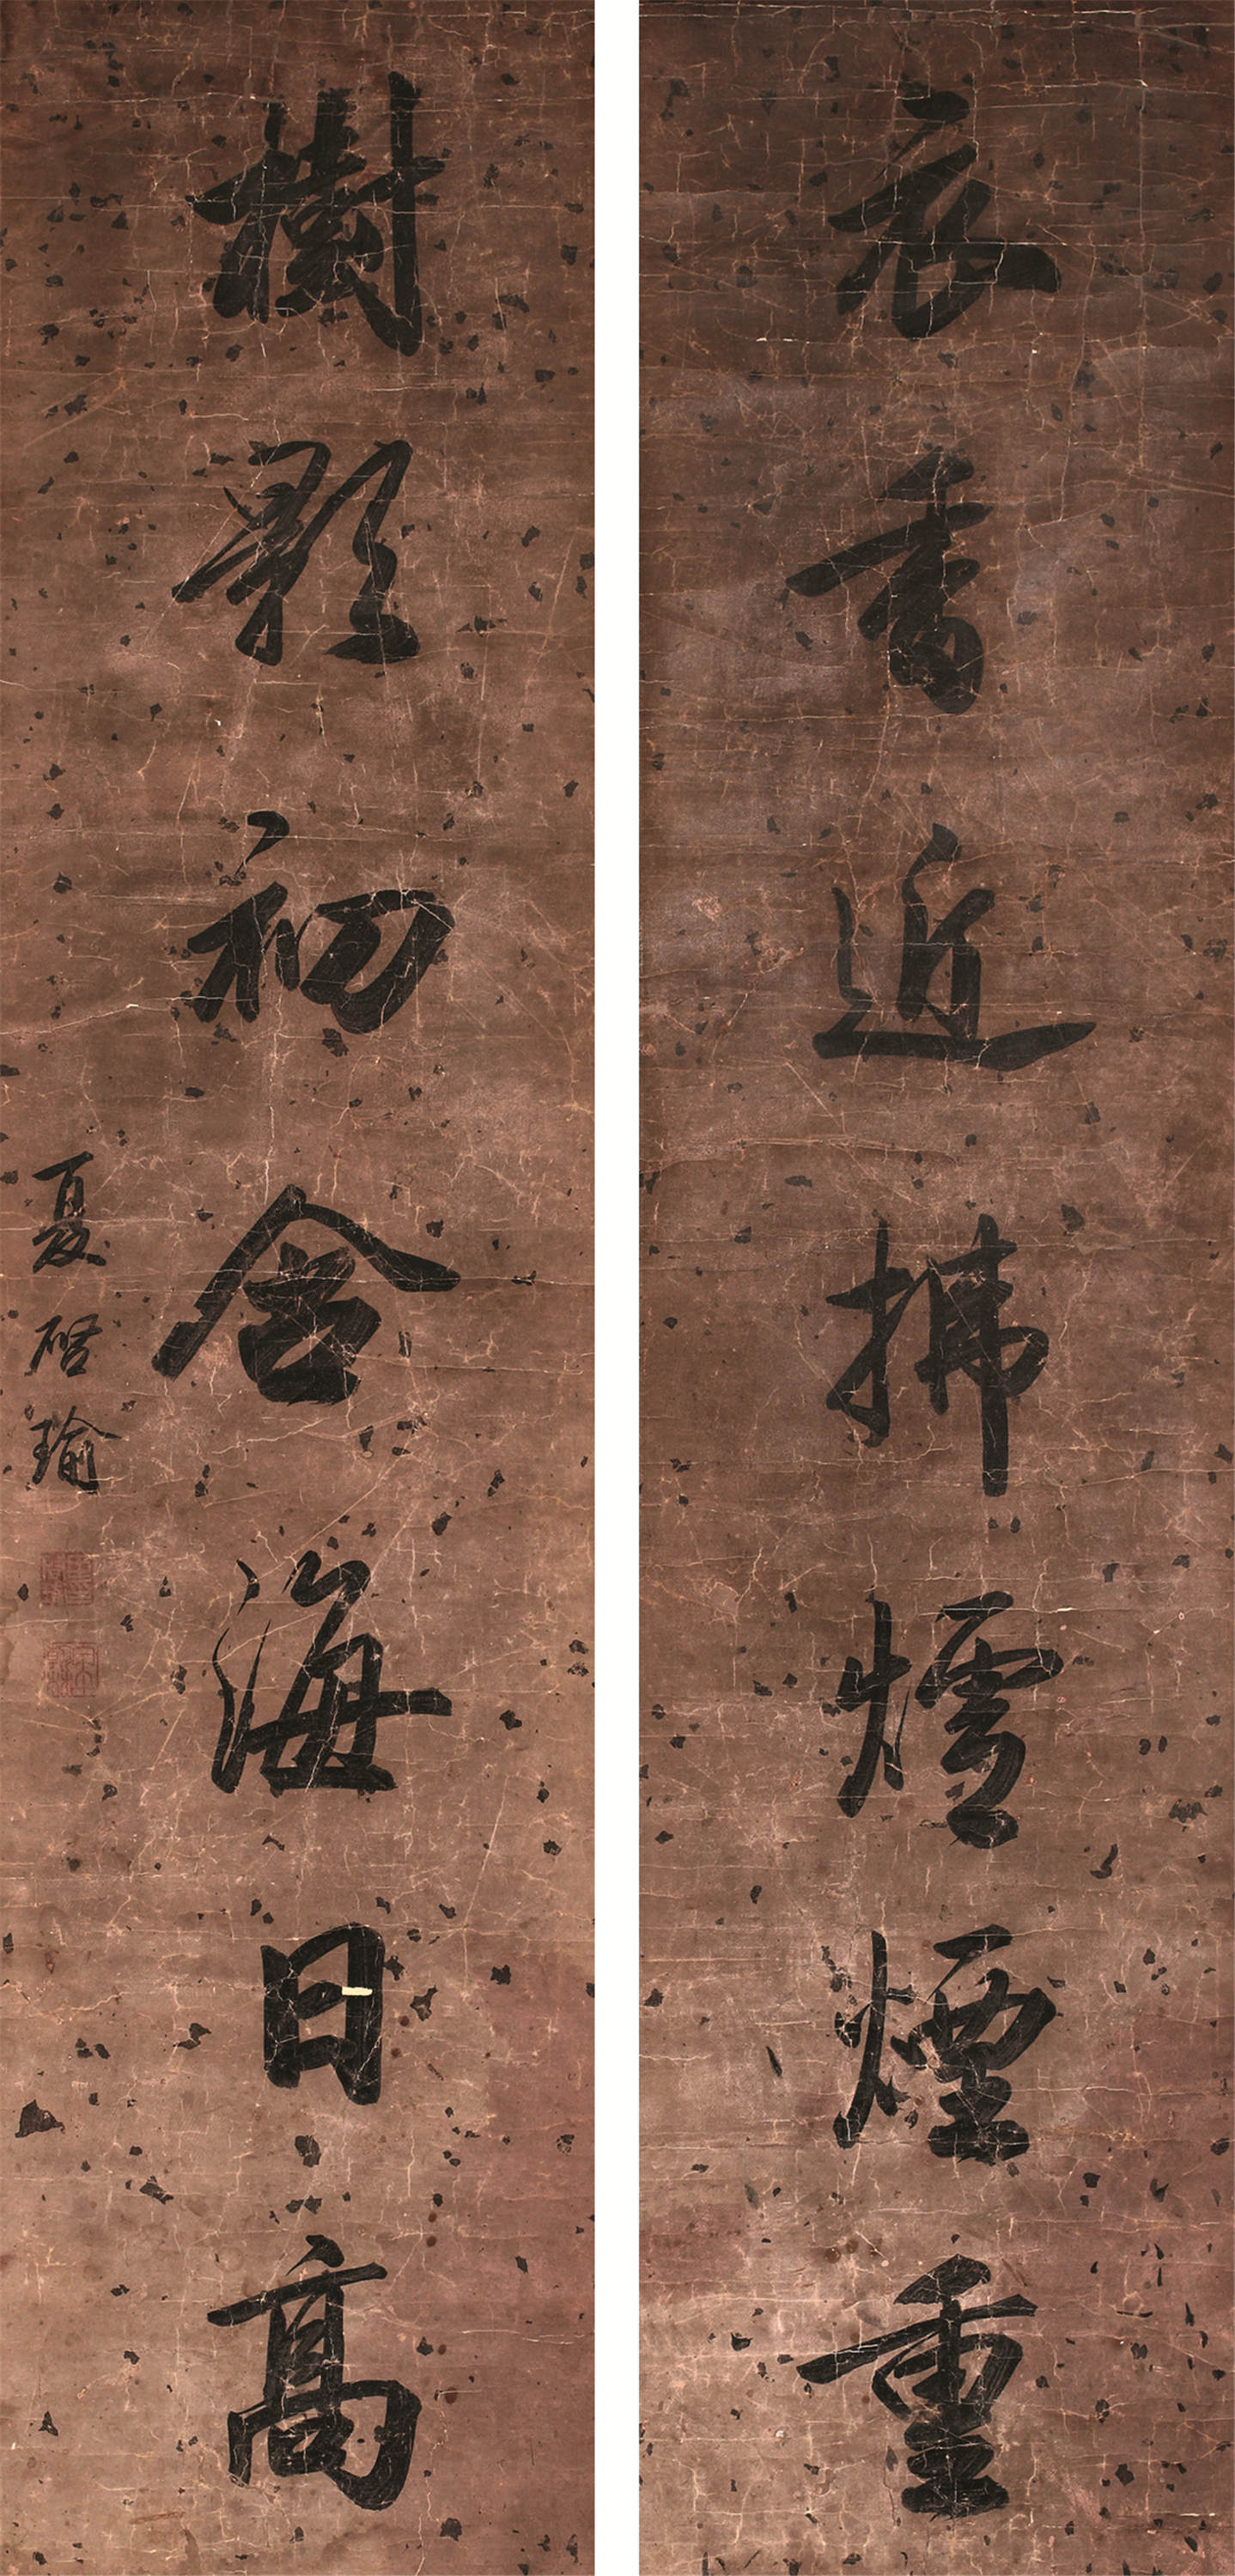 衣香近拂爐煙重
樹影初含海日高
夏啓瑜